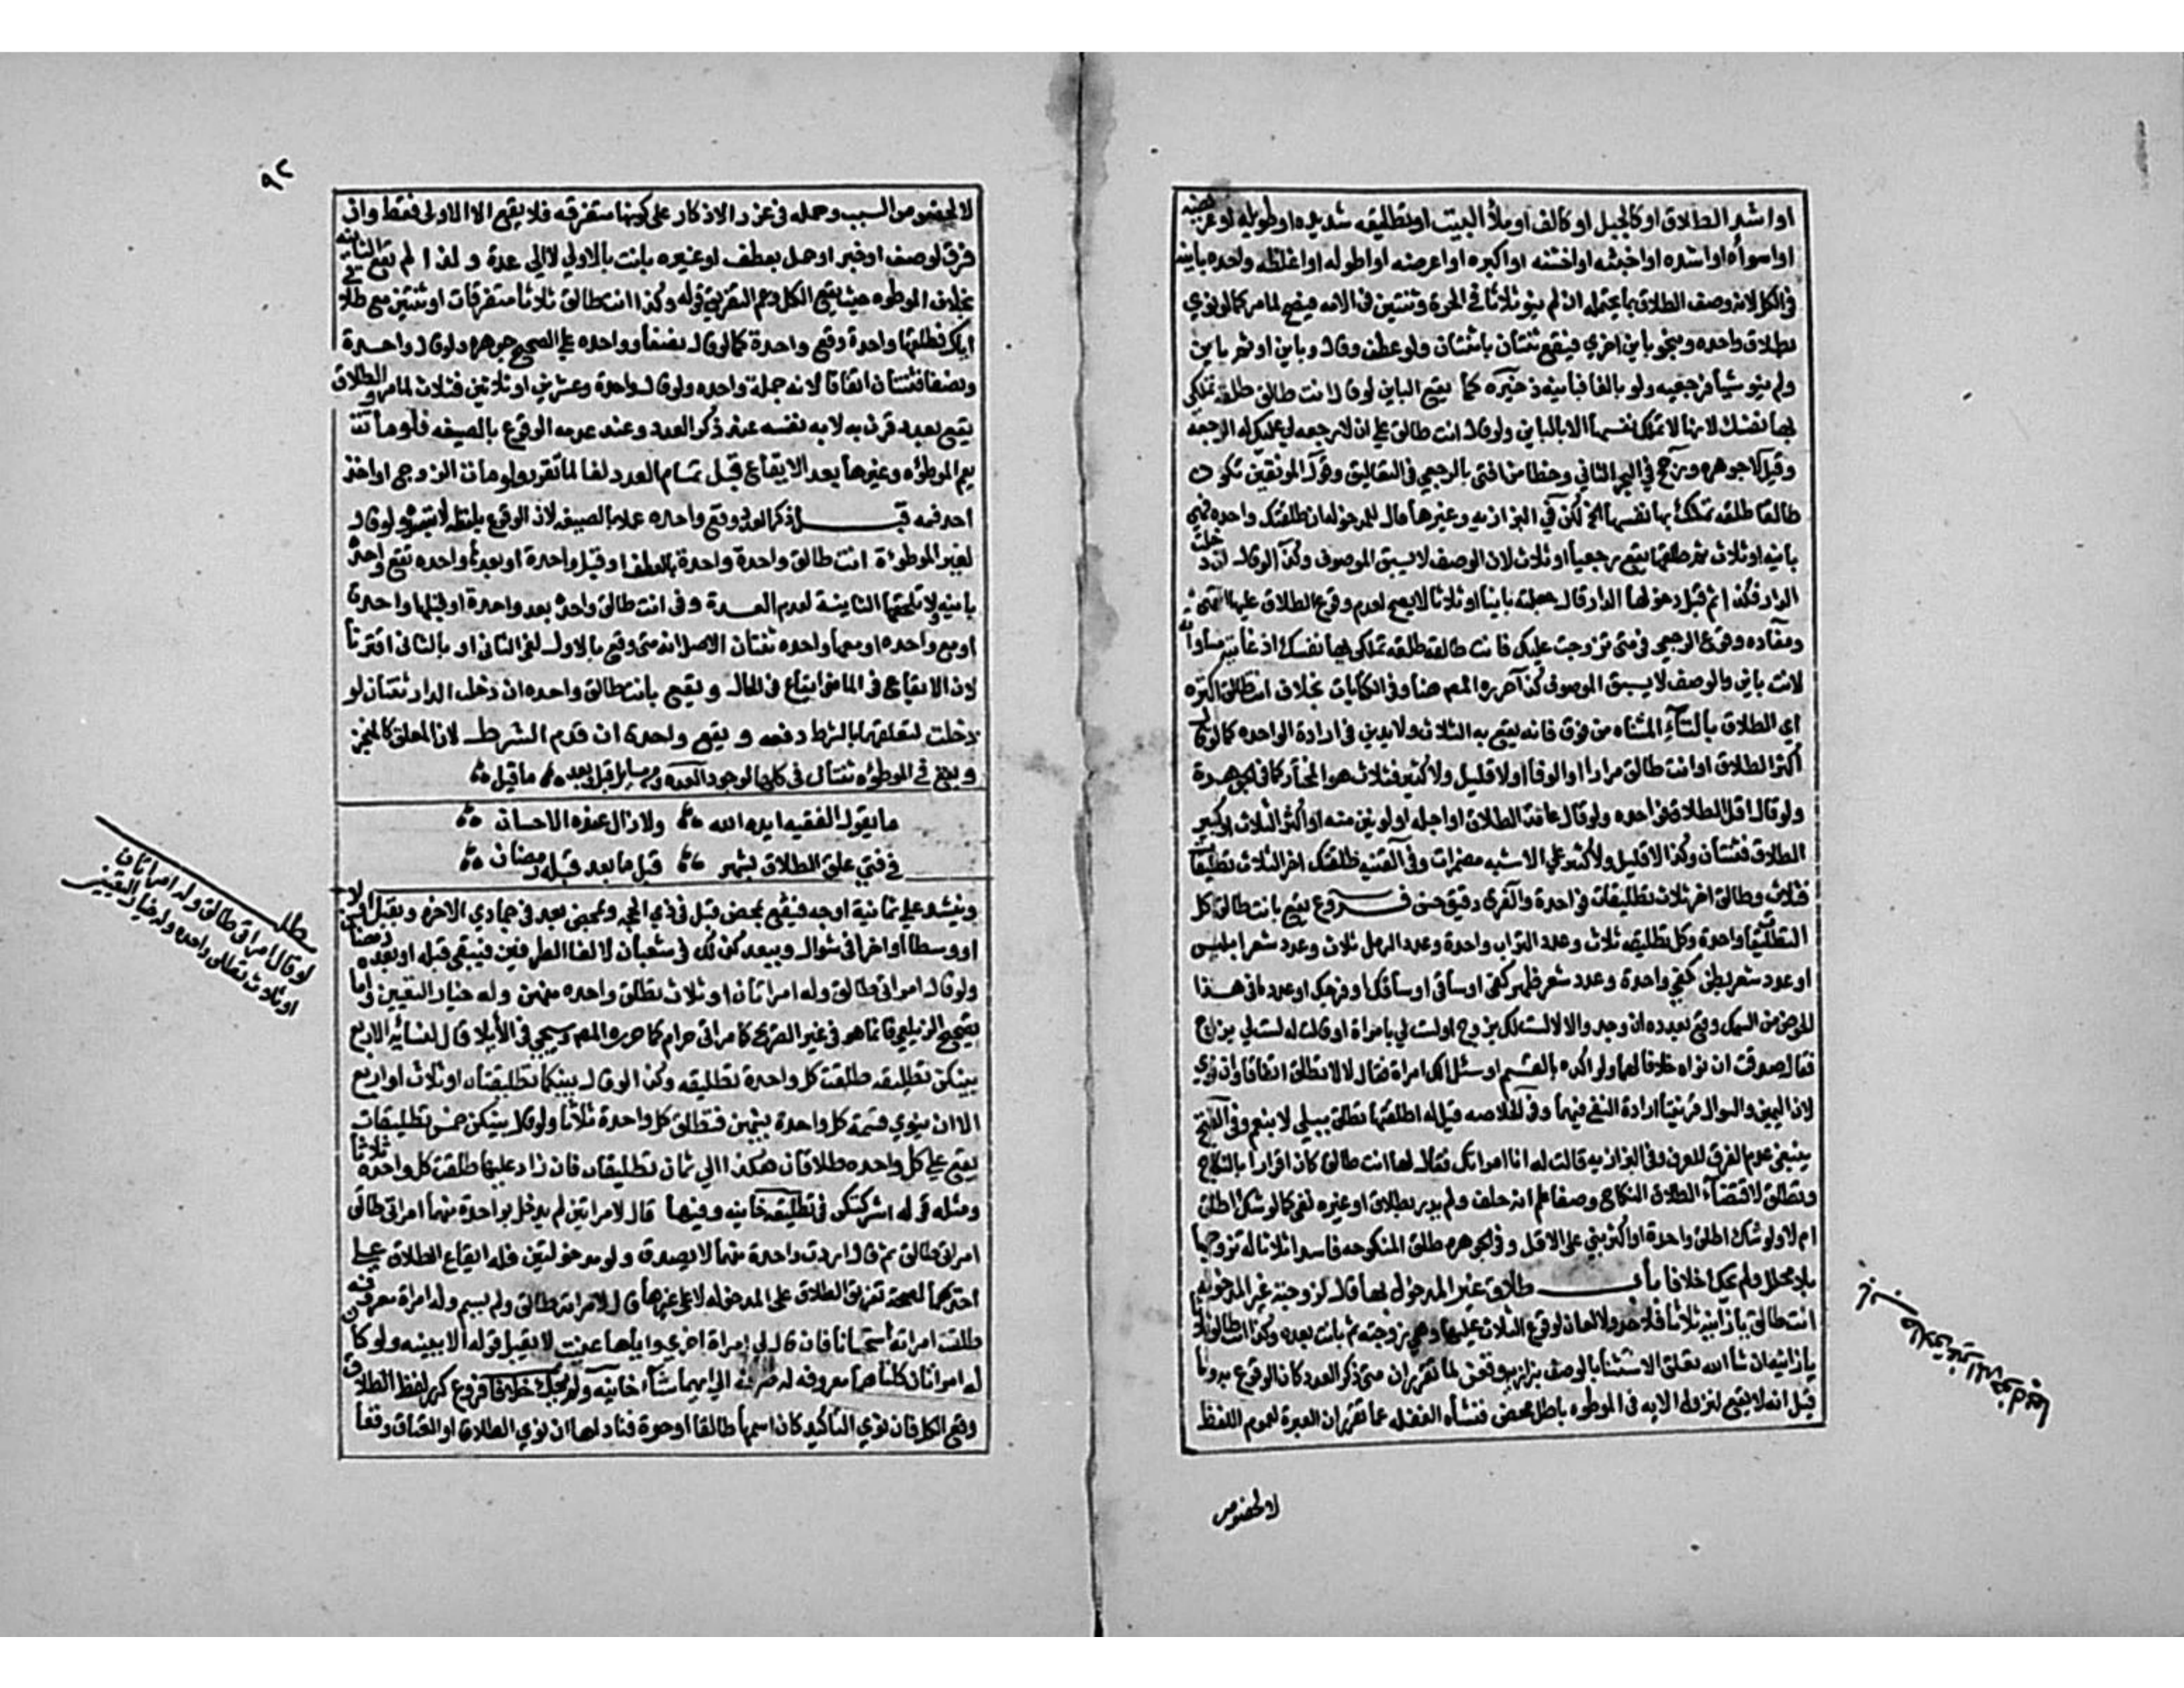 او اشد الطلاق او كالجبل او كالف او ملأ البيت او تطليقه شديده او طويله او عريضه
او اسوأه او اشده او اخبثه او اخشنه او اكبره او اعرضه او اطوله او اغلظه واحده باينه
في الكل لانه وصف الطلاق بما يحتمله ان لم ينو ثلاثا في الحرة وثنتين في الامه فيصح لما مر كما لو نوي
بطلاق واحده وبنحو باين اخري فيقع ثنتان باينتان ولو عطف وقال وباين او ثم باين
ولم ينو شيأ فرجعيه ولو بالفا فباينه ذخيره كما يقع الباين لو قال انت طالق طلقة تملكي
بها نفسك لانها لا تملك نفسها الا بالباين ولو قال انت طالق علي ان لا رجعه لي عليك له الرجعه
وقيل لا جوهره ورجح في البحر الثاني وخطأ من افتي بالرجعي في التعاليق وقول الموثقين تكون
طالقا طلقه تملك بها نفسها الخ لكن في البزازيه وغيرها قال للمدخوله ان طلقتك واحده فهي
باينه او ثلاث ثم طلقها يقع رجعيا او ثلاث لان الوصف لا يسبق الموصوف وكذا لو قال ان دخلت
الدار فكذا ثم قبل دخولها الدار قال جعلته باينا او ثلاثا لا يصح لعدم وقوع الطلاق عليها انتهي
ومفاده وقوع الرجعي في متي تزوجت عليك فانت طالقه طلقه تملكي بها نفسك اذ غايته مساواة
لانت باين والوصف لا يسبق الموصوف كذا حرره المص هنا وفي الكنايات بخلاف انت طالق اكثره
اي الطلاق بالتاء المثناه من فوق فانه يقع به الثلاث ولا يدين في ارادة الواحده كما لو قال
اكثر الطلاق او انت طالق مرارا او الوفا او لا قليل ولا كثير فثلاث هو المختار كما في الجوهرة
ولو قال اقل الطلاق فواحده ولو قال عامة الطلاق او اجله او لونين منه او اكثر الثلاث او كبير
الطلاق فثنتان وكذا لا قليل ولا كثير علي الاشبه مضمرات وفي القنيه طلقتك اخر الثلاث تطليقات
فثلاث وطالق اخر ثلاث تطليقات فواحدة والفرق دقيق حسن فروع يقع بانت طالق كل
التطليقة واحدة وكل تطليقه ثلاث وعدد التراب واحدة وعدد الرمل ثلاث وعدد شعر ابليس
او عدد شعر بطن كفي واحدة وعدد شعر ظهر كفي او ساقي او ساقك او فرجك او عدد ما في هذا
الحوض من السمك وقع بعدده ان وجد والا لا لست لك بزوج او لست لي بامراة او قالت له لست لي بزوج
فقال صدقت ان نواه خلافا لهما ولو اكده بالقسم او سئل الك امراة فقال لا لا تطلق اتفاقا وان نوي
لان اليمين والسوال قرينتا ارادة النفي فيهما وفي الخلاصه قيل له اطلقتها تطلق ببلي لا بنعم وفي الفتح
ينبغي عدم الفرق للعرف وفي البزازيه قالت له انا امراتك فقال لها انت طالق كان اقرارا بالنكاح
وتطلق لاقتضاء الطلاق النكاح وضعا علم انه حلف ولم يدر بطلاق او غيره لغي كما لو شك اطلق
ام لا ولو شك اطلق واحدة او اكثر بني علي الاقل وفي الجوهره طلق المنكوحه فاسدا ثلاثا له تزوجها
بلا محلل ولم يحك خلافا باب طلاق غير المدخول بها قال لزوجته غير المدخول بها
انت طالق يا زانية ثلاثا فلا حد ولا لعان لوقوع الثلاث عليها وهي زوجته ثم بانت بعده وكذا انت طالق ثلاثا
يا زانية ان شا الله تعلق الاستثنا بالوصف بزازيه وقعن لما تقرر ان متي ذكر العدد كان الوقوع به وما
قيل انه لا يقع لنزول الايه في الموطوه باطل محض منشاه الغفله عما تقرر ان العبرة لعموم اللفظ
لا لخصوص
٩٢
لا لخصوص السبب وحمله في غرر الاذكار علي كونها متفرقه فلا يقع الا الاولي فقط وان
فرق لوصف او خبر او جمل بعطف او غيره بانت بالاولي لا الي عدة ولذا لم تقع الثانيه
بخلاف الموطوه حيث يقع الكل وعم التفريق قوله وكذا انت طالق ثلاثا متفرقات او ثنتين مع طلاقي
اياك فطلقها واحدة وقع واحدة كما لو قال نصفا وواحده علي الصحيح جوهره ولو قال واحدة
ونصفا فثنتان اتفاقا لانه جملة واحده ولو قال واحدة وعشرين او ثلاثين فثلاث لما مر والطلاق
يقع بعدد قرن به لا به نفسه عند ذكر العدد وعند عدمه الوقوع بالصيغه فلو ماتت
يعم الموطؤه وغيرها بعد الايقاع قبل تمام العدد لغا لما تقرر ولو مات الزوج او اخذ
احد فمه قبل ذكر العدد وقع واحده عملا بالصيغه لان الوقوع بلفظه لا بقصده ولو قال
لغير الموطوءة انت طالق واحدة وواحدة بالعطف او قبل واحدة او بعدها واحده تقع واحدة
باينه ولا تلحقها الثانية لعدم العدة وفي انت طالق واحدة بعد واحدة او قبلها واحدة
او مع واحده او معها واحده ثنتان الاصل انه متي وقع بالاول لغي الثاني او بالثاني اقترنا
لان الايقاع في الماضي ايقاع في الحال ويقع بانت طالق واحده ان دخلت الدار ثنتان لو
دخلت لتعلقهما بالشرط دفعه ويقع واحدة ان قدم الشرط لان المعلق كالمنجز
ويقع في الموطؤه ثنتان في كلها لوجود العده ومن مسايل قبل وبعد ما قيل
ما يقول الفقيه ايده الله ولا زال عنده الاحسان
في فتي علق الطلاق بشهر قبل ما بعد قبله رمضان
وينشد علي ثمانية اوجه فيقع بمحض قبل في ذي الحجه وبمحض بعد في جمادي الاخره وبقبل اولا
او وسطا او اخرا في شوال وببعد كذلك في شعبان لالغا الطرفين فيبقي قبله او بعده رمضان
ولو قال امراتي طالق وله امراتان او ثلاث تطلق واحده منهن وله خيار التعيين واما
تصحيح الزيلعي فانما هو في غير الصريح كامراتي حرام كما حرره المص وسيجي في الايلا قال لنسائه الاربع
بينكن تطليقه طلقت كل واحدة تطليقه وكذا لو قال بينكما تطليقتان او ثلاث او اربع
الا ان ينوي قسمة كل واحدة بينهن فتطلق كل واحدة ثلاثا ولو قال بينكن خمس تطليقات
يقع علي كل واحده طلاقان هكذا الي ثمان تطليقات فان زاد عليها طلقت كل واحدة ثلاثا
ومثله قوله اشركتكن في تطليقه خانيه وفيها قال لامراتين لم يدخل بواحدة منهما امراتي طالق
امراتي طالق ثم قال اردت واحدة منهما لا يصدق ولو مدخولتين فله ايقاع الطلاق علي
احدهما لصحة تفريق الطلاق علي المدخوله لا علي غيرها قال امراته طالق ولم يسم وله امراة معروفه
طلقت امراته استحسانا فان قال لي امراة اخري واياها عنيت لا يقبل قوله الا ببينه ولو كان
له امراتان كلتاهما معروفه له صرفه الي ايهما شاء خانيه ولم يحك خلافا فروع كرر لفظ الطلاق
وقع الكل فان نوي التاكيد كان اسمها طالقا او حرة فناداها ان نوي الطلاق او العتاق وقعا
مطلب
لو قال امراتي طالق وله امراتان
او ثلاث تطلق واحده وله خيار التعيين